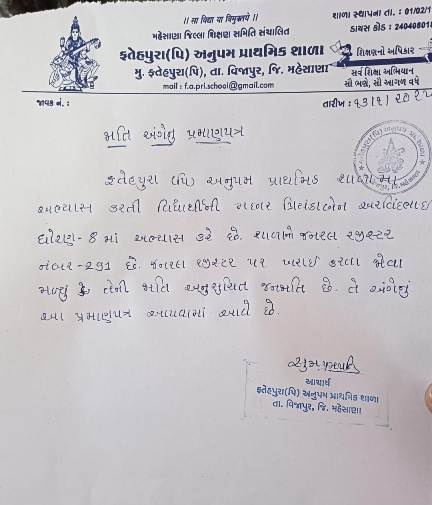 || सा विद्या या विमुक्तये ||
શાળા સ્થાપના તા. : 01/02/1
મહેસાણા જિલ્લા શિક્ષણ સમિતિ સંચાલિત
ડાયસ કોડ : 24040801
ફતેહપુરા(વિ) અનુપમ પ્રાથમિક શાળા
શિક્ષણનો અધિકાર
મુ. ફતેહપુરા(વિ), તા. વિજાપુર, જિ. મહેસાણા
સર્વ શિક્ષા અભિયાન
mail : f.a.pri.school@gmail.com
સૌ ભણે, સૌ આગળ વધે
જાવક નં. :
તારીખ :
જાતિ અંગેનું પ્રમાણપત્ર
ફતેહપુરા (વિ) અનુપમ પ્રાથમિક શાળામાં
અભ્યાસ કરતી વિદ્યાર્થીની
ધોરણ- 8 માં અભ્યાસ કરે છે. શાળાને જનરલ રજીસ્ટર
નંબર -291 છે. જનરલ રજીસ્ટર પર ખરાઈ કરતા જોવા
મળ્યું કે તેની જાતિ અનુસૂચિત જનજાતિ છે. તે અંગેનું
આ પ્રમાણપત્ર આપવામાં આવે છે.
આચાર્ય
ફતેહપુરા(વિ) અનુપમ પ્રાથમિક શાળા
તા. વિજાપુર, જિ. મહેસાણા